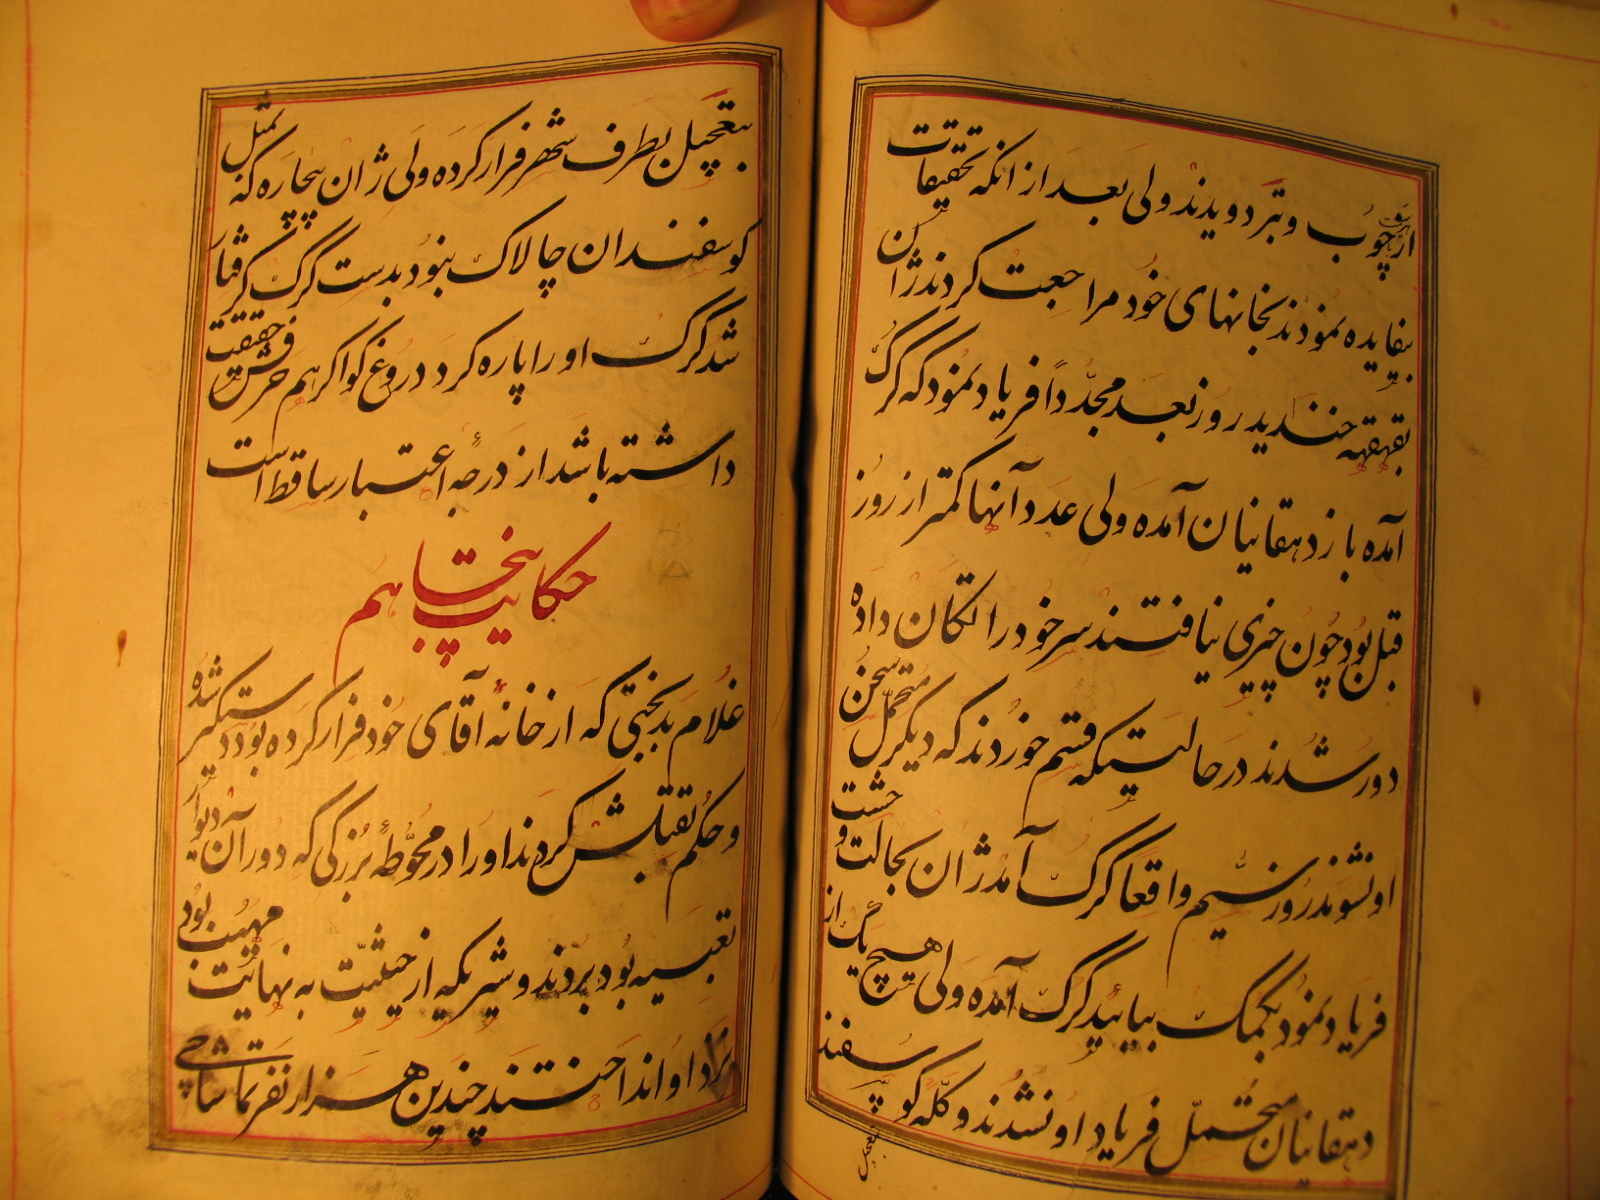 از چوب و تبر دویدند ولی بعد از انکه تحقیقات
بیفایده نمودند بخانهای خود مراجعت کردند ژان
بقهقهه خندید روز بعد مجدّداً فریاد نمود که گرگ
آمده باز دهقانیان آمده ولی عدد آنها کمتر از روز
قبل بود چون چیزی نیافتند سر خود را تکان داده
دور شدند در حالتیکه قسم خوردند که دیگر متحمل سخن
او نشوند روز سیّم واقعاً گرگ آمد ژان بحالت وحشت
فریاد نمود بکمک بیایید گرگ آمده ولی هیچ یک از
دهقانیان متحمّل فریاد او نشدند و گلّه گوسفند
بتعجیل
بتعجیل بطرف شهر فرار کرده ولی ژان بیچاره که بمثل
گوسفندان چالاک نبود بدست گرگ گرفتار
شد گرگ او را پاره کرد دروغ گو اگر هم حرفش حقیقت
داشته باشد از درجهٔ اعتبار ساقط است
حکایت پنجاهم
غلام بدبختی که از خانهٔ آقای خود فرار کرده بود دستگیر شده
و حکم بقتلش کردند او را در محوّطهٔ بزرگی که دور آن دیوار
تعبیه بود بردند و شیریکه از حیثیّت به نهایت مهیب بود
نزد او انداختند چندین هزار نفر تماشاچی